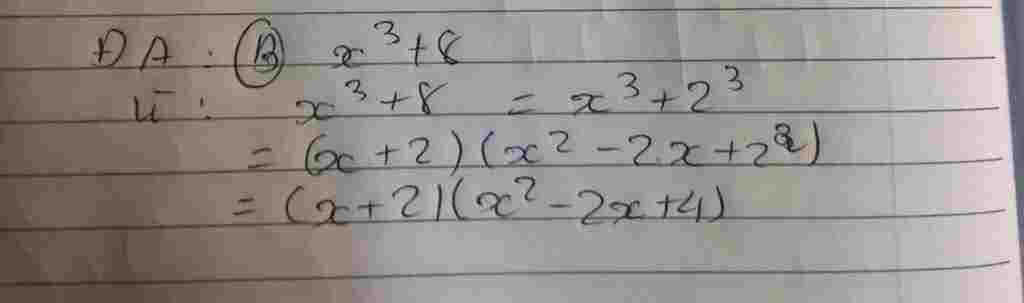 ĐA: B x³+8
Vì: x³+8 = x³+2³
= (x+2)(x²-2x+2²)
= (x+2)(x²-2x+4)